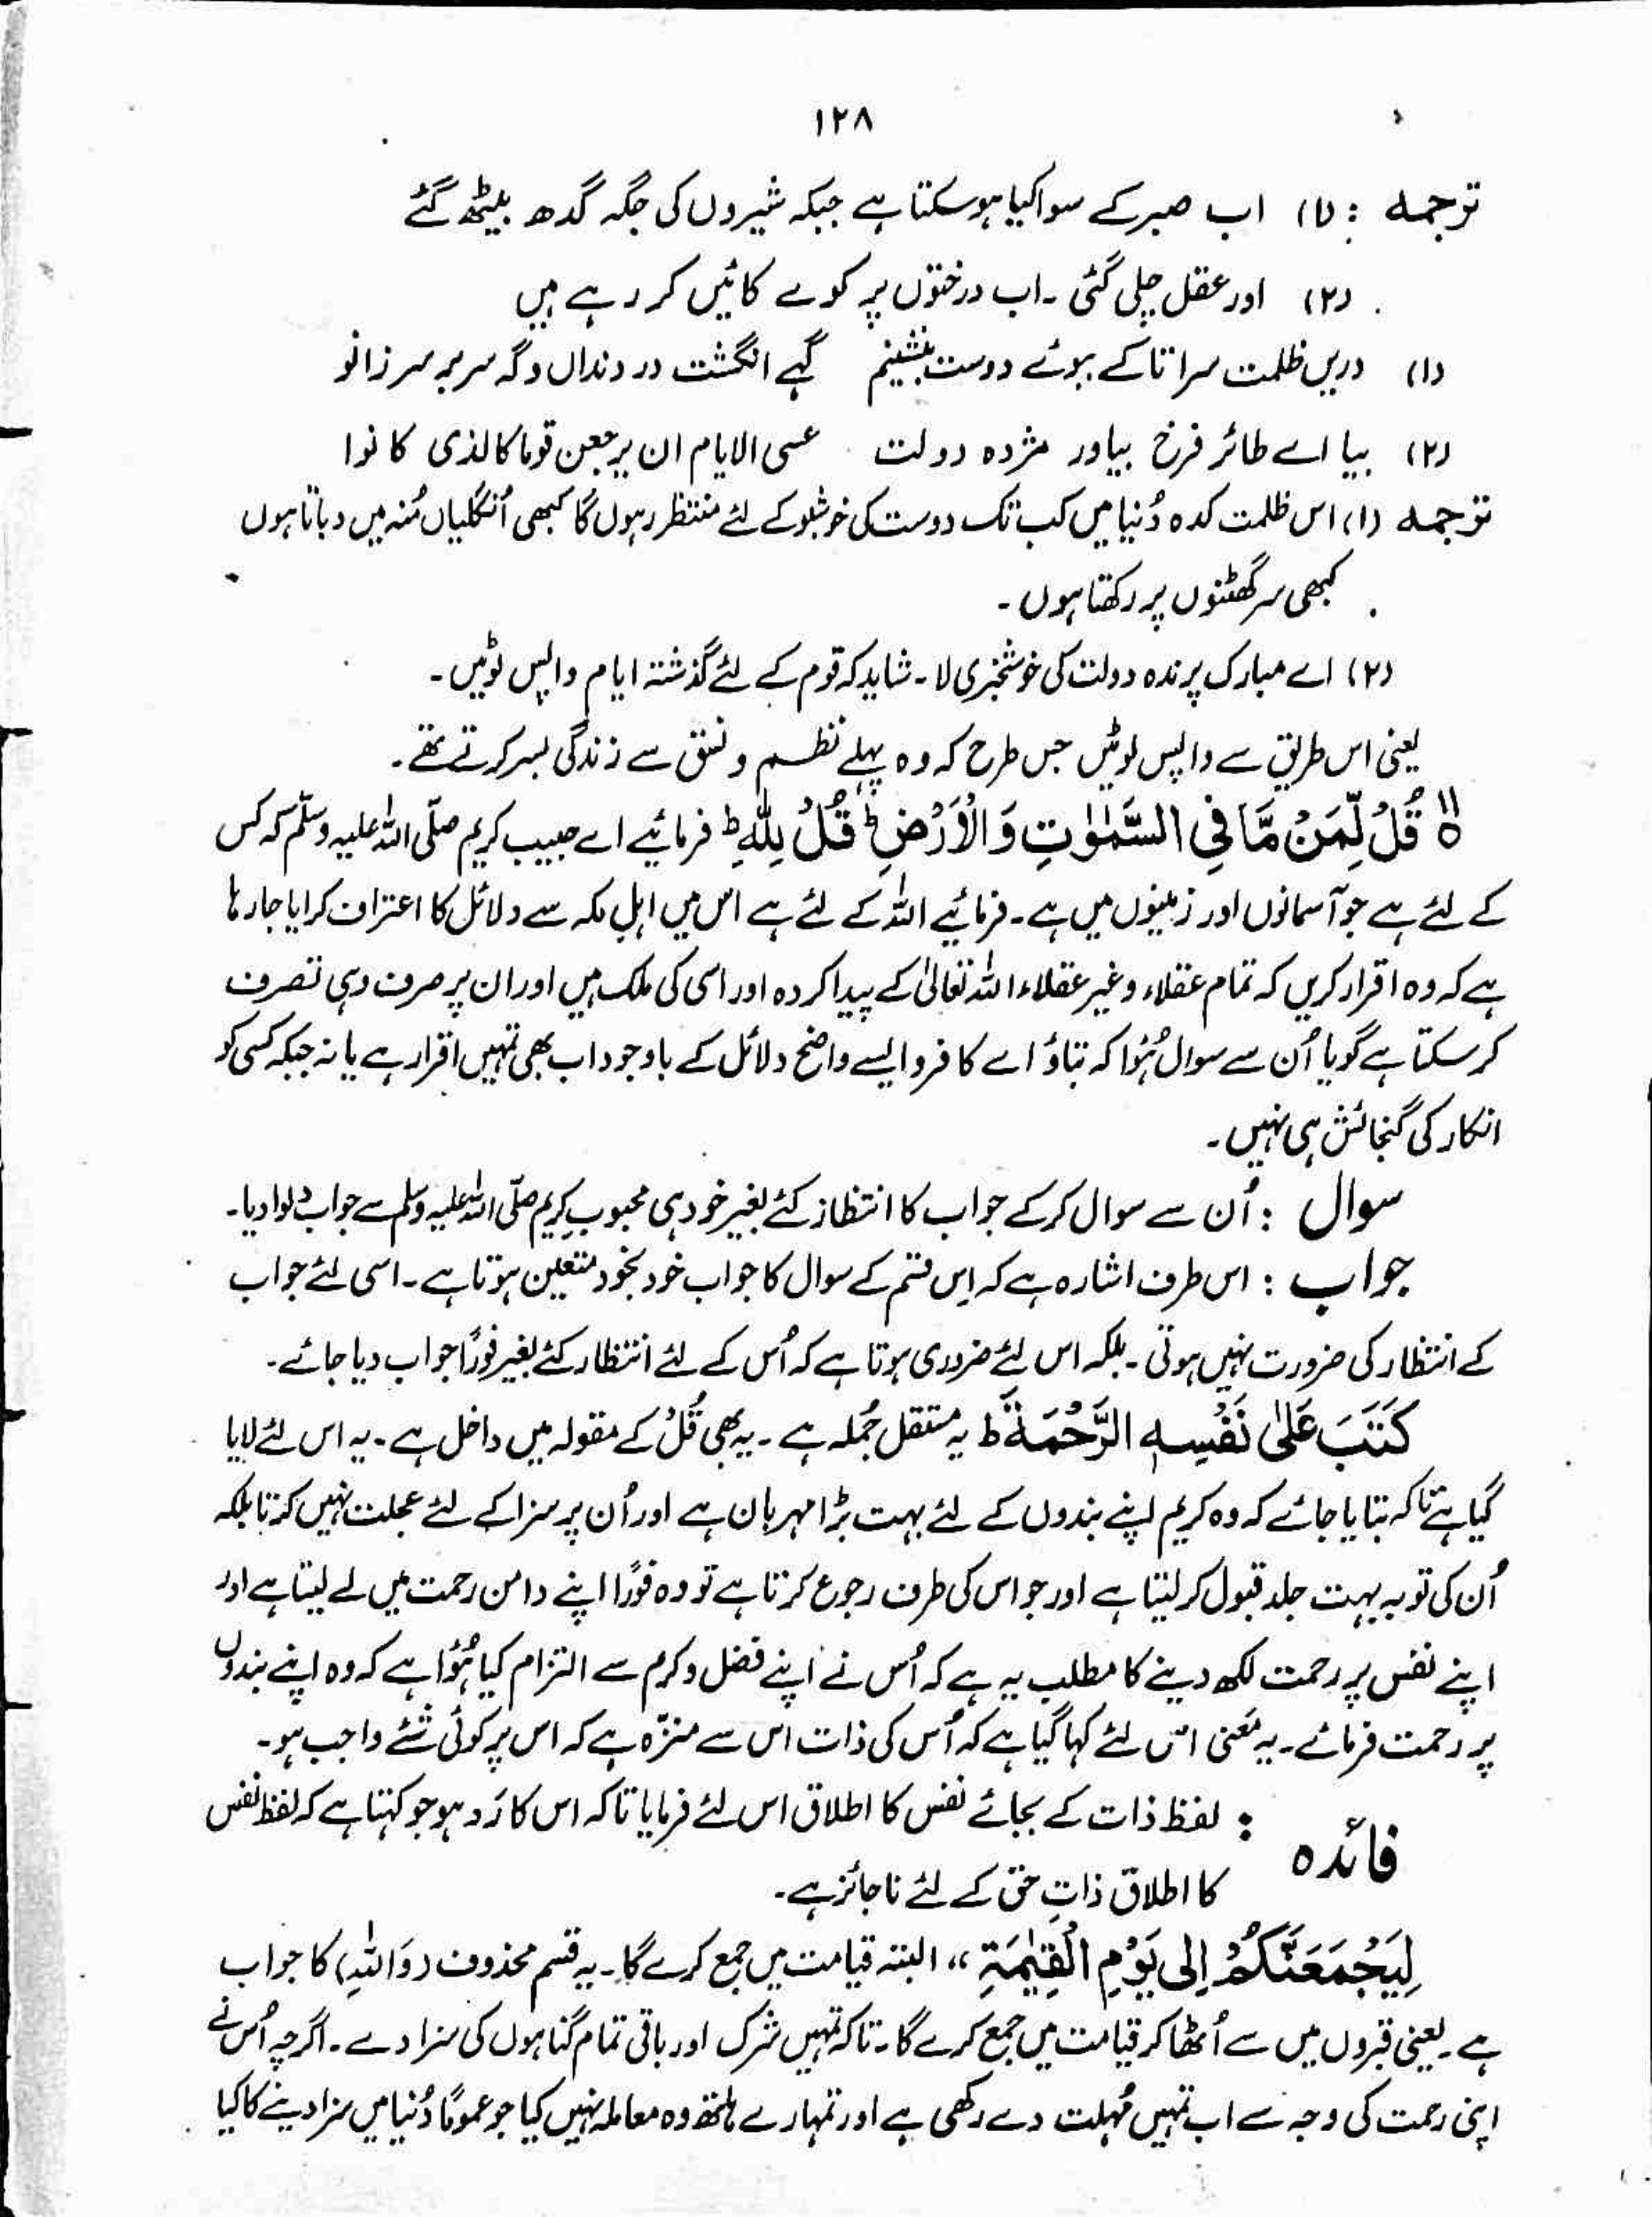 ۱۲۸
ترجمہ : (۱) اب صبر کے سوا کیا ہو سکتا ہے جبکہ شیروں کی جگہ گدھ بیٹھ گئے
(۲) اور عقل چلی گئی ۔ اب درختوں پر کوے کائیں کر رہے ہیں
(۱) دریں ظلمت سرا تا کے ببوئے دوست بنشینم گہے انگشت در دنداں و گہ سر بر سر زانو
(۲) بیا اے طائر فرخ بیاور مژدہ دولت عسی الایام ان یرجعن قوما کالذی کانوا
ترجمہ (۱) اس ظلمت کدہ دُنیا میں کب تک دوست کی خوشبو کے لئے منتظر رہوں گا کبھی اُنگلیاں مُنہ میں دباتا ہوں
کبھی سر گھٹنوں پر رکھتا ہوں ۔
(۲) اے مبارک پرندہ دولت کی خوشخبری لا ۔ شاید کہ قوم کے لئے گذشتہ ایام واپس لوٹیں ۔
یعنی اس طریق سے واپس لوٹیں جس طرح کہ وہ پہلے نظم و نسق سے زندگی بسر کرتے تھے ۔
قُلْ لِّمَنْ مَّا فِی السَّمٰوٰتِ وَالْاَرْضِ ؕ قُلْ لِلّٰہِ ؕ فرمائیے اے حبیب کریم صلّی اللہ علیہ وسلّم کہ کس
کے لئے ہے جو آسمانوں اور زمینوں میں ہے ۔ فرمائیے اللہ کے لئے ہے اس میں اہلِ مکہ سے دلائل کا اعتراف کرایا جا رہا
ہے کہ وہ اقرار کریں کہ تمام عقلاء و غیر عقلاء اللہ تعالیٰ کے پیدا کردہ اور اسی کی ملک ہیں اور ان پر صرف وہی تصرف
کر سکتا ہے گویا اُن سے سوال ہُوا کہ بتاؤ اے کافرو ایسے واضح دلائل کے باوجود اب بھی تمہیں اقرار ہے یا نہ جبکہ کسی کو
انکار کی گنجائش ہی نہیں ۔
سوال : اُن سے سوال کر کے جواب کا انتظار کئے بغیر خود ہی محبوب کریم صلّی اللہ علیہ وسلم سے جواب دلوا دیا ۔
جواب : اس طرف اشارہ ہے کہ اِس قسم کے سوال کا جواب خود بخود متعین ہوتا ہے ۔ اسی لئے جواب
کے انتظار کی ضرورت نہیں ہوتی ۔ بلکہ اس لئے ضروری ہوتا ہے کہ اُس کے لئے انتظار کئے بغیر فوراً جواب دیا جائے ۔
کَتَبَ عَلٰی نَفْسِہِ الرَّحْمَۃَ ؕ یہ مستقل جُملہ ہے ۔ یہ بھی قُلْ کے مقولہ میں داخل ہے ۔ یہ اس لئے لایا
گیا ہے تاکہ بتایا جائے کہ وہ کریم اپنے بندوں کے لئے بہت بڑا مہربان ہے اور اُن پر سزا کے لئے عجلت نہیں کرتا بلکہ
اُن کی توبہ بہت جلد قبول کر لیتا ہے اور جو اس کی طرف رجوع کرتا ہے تو وہ فوراً اپنے دامن رحمت میں لے لیتا ہے اور
اپنے نفس پر رحمت لکھ دینے کا مطلب یہ ہے کہ اُس نے اپنے فضل و کرم سے التزام کیا ہُوا ہے کہ وہ اپنے بندوں
پر رحمت فرمائے ۔ یہ معنی اس لئے کہا گیا ہے کہ اُس کی ذات اس سے منزّہ ہے کہ اس پر کوئی شئے واجب ہو ۔
فائدہ : لفظ ذات کے بجائے نفس کا اطلاق اس لئے فرمایا تاکہ اس کا رَد ہو جو کہتا ہے کہ لفظ نفس
کا اطلاق ذاتِ حق کے لئے ناجائز ہے ۔
لَیَجْمَعَنَّکُمْ اِلٰی یَوْمِ الْقِیٰمَۃِ ،، البتہ قیامت میں جمع کرے گا ۔ یہ قسم محذوف (وَاللہِ) کا جواب
ہے ۔ یعنی قبروں میں سے اُٹھا کر قیامت میں جمع کرے گا ۔ تاکہ تمہیں شرک اور باقی تمام گناہوں کی سزا دے ۔ اگرچہ اُس نے
اپنی رحمت کی وجہ سے اب تمہیں مُہلت دے رکھی ہے اور تمہارے ساتھ وہ معاملہ نہیں کیا جو عموماً دُنیا میں سزا دینے کا کیا